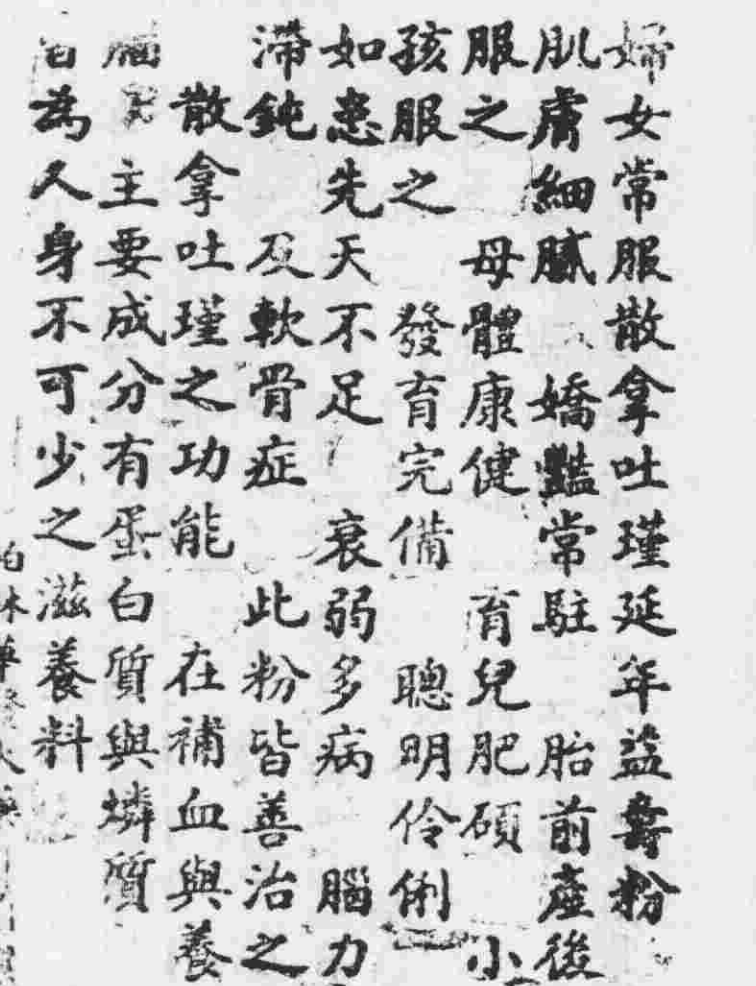 婦女常服散拿吐瑾延年益壽粉
肌膚細膩 嬌豔常駐 胎前產後
服之 母體康健 育兒肥碩 小
孩服之 發育完備 聰明伶俐
如患先天不足 衰弱多病 腦力
滯鈍 及軟骨症 此粉皆善治之
散拿吐瑾之功能 在補血與養
腦 主要成分有蛋白質與燐質
皆為人身不可少之滋養料
柏林華發大藥